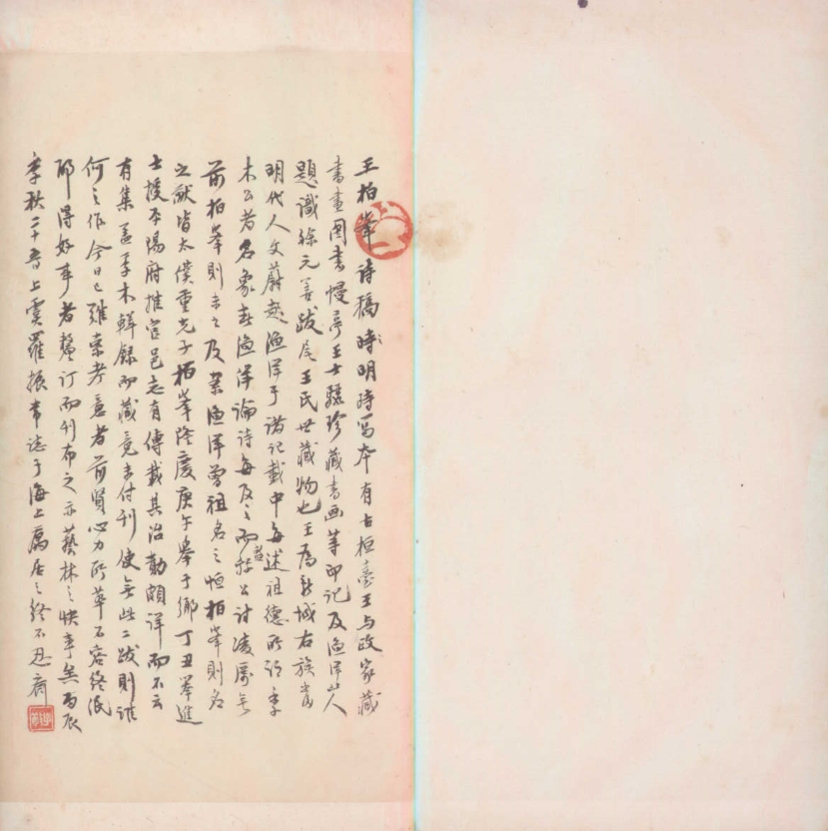 王柏峯詩稿明時寫本有古桓臺王与政家藏
書畫圖書慢亭王士騄珍藏書画等印記及漁洋山人
題識徐元善跋尾王氏世藏物也王為新城右族當
明代人文蔚起漁洋于諸記載中每述祖德所謂季
木公者名象春漁洋論詩每及之而於公詩凌厲無
前柏峯則未之及案漁洋曾祖名之垣柏峯則名
之猷皆太僕重光子柏峯隆慶庚午舉于鄉丁丑舉進
士授平陽府推官邑志有傳載其治勣頗詳而不云
有集蓋季木輯錄而藏竟未付刊使無此二跋則誰
何之作今日已難案考意者前賢心力所萃不容終泯
耶得好事者釐訂而刊布之亦藝林之快事矣丙辰
季秋二十五日上虞羅振常誌于海上寓居之終不忍齋